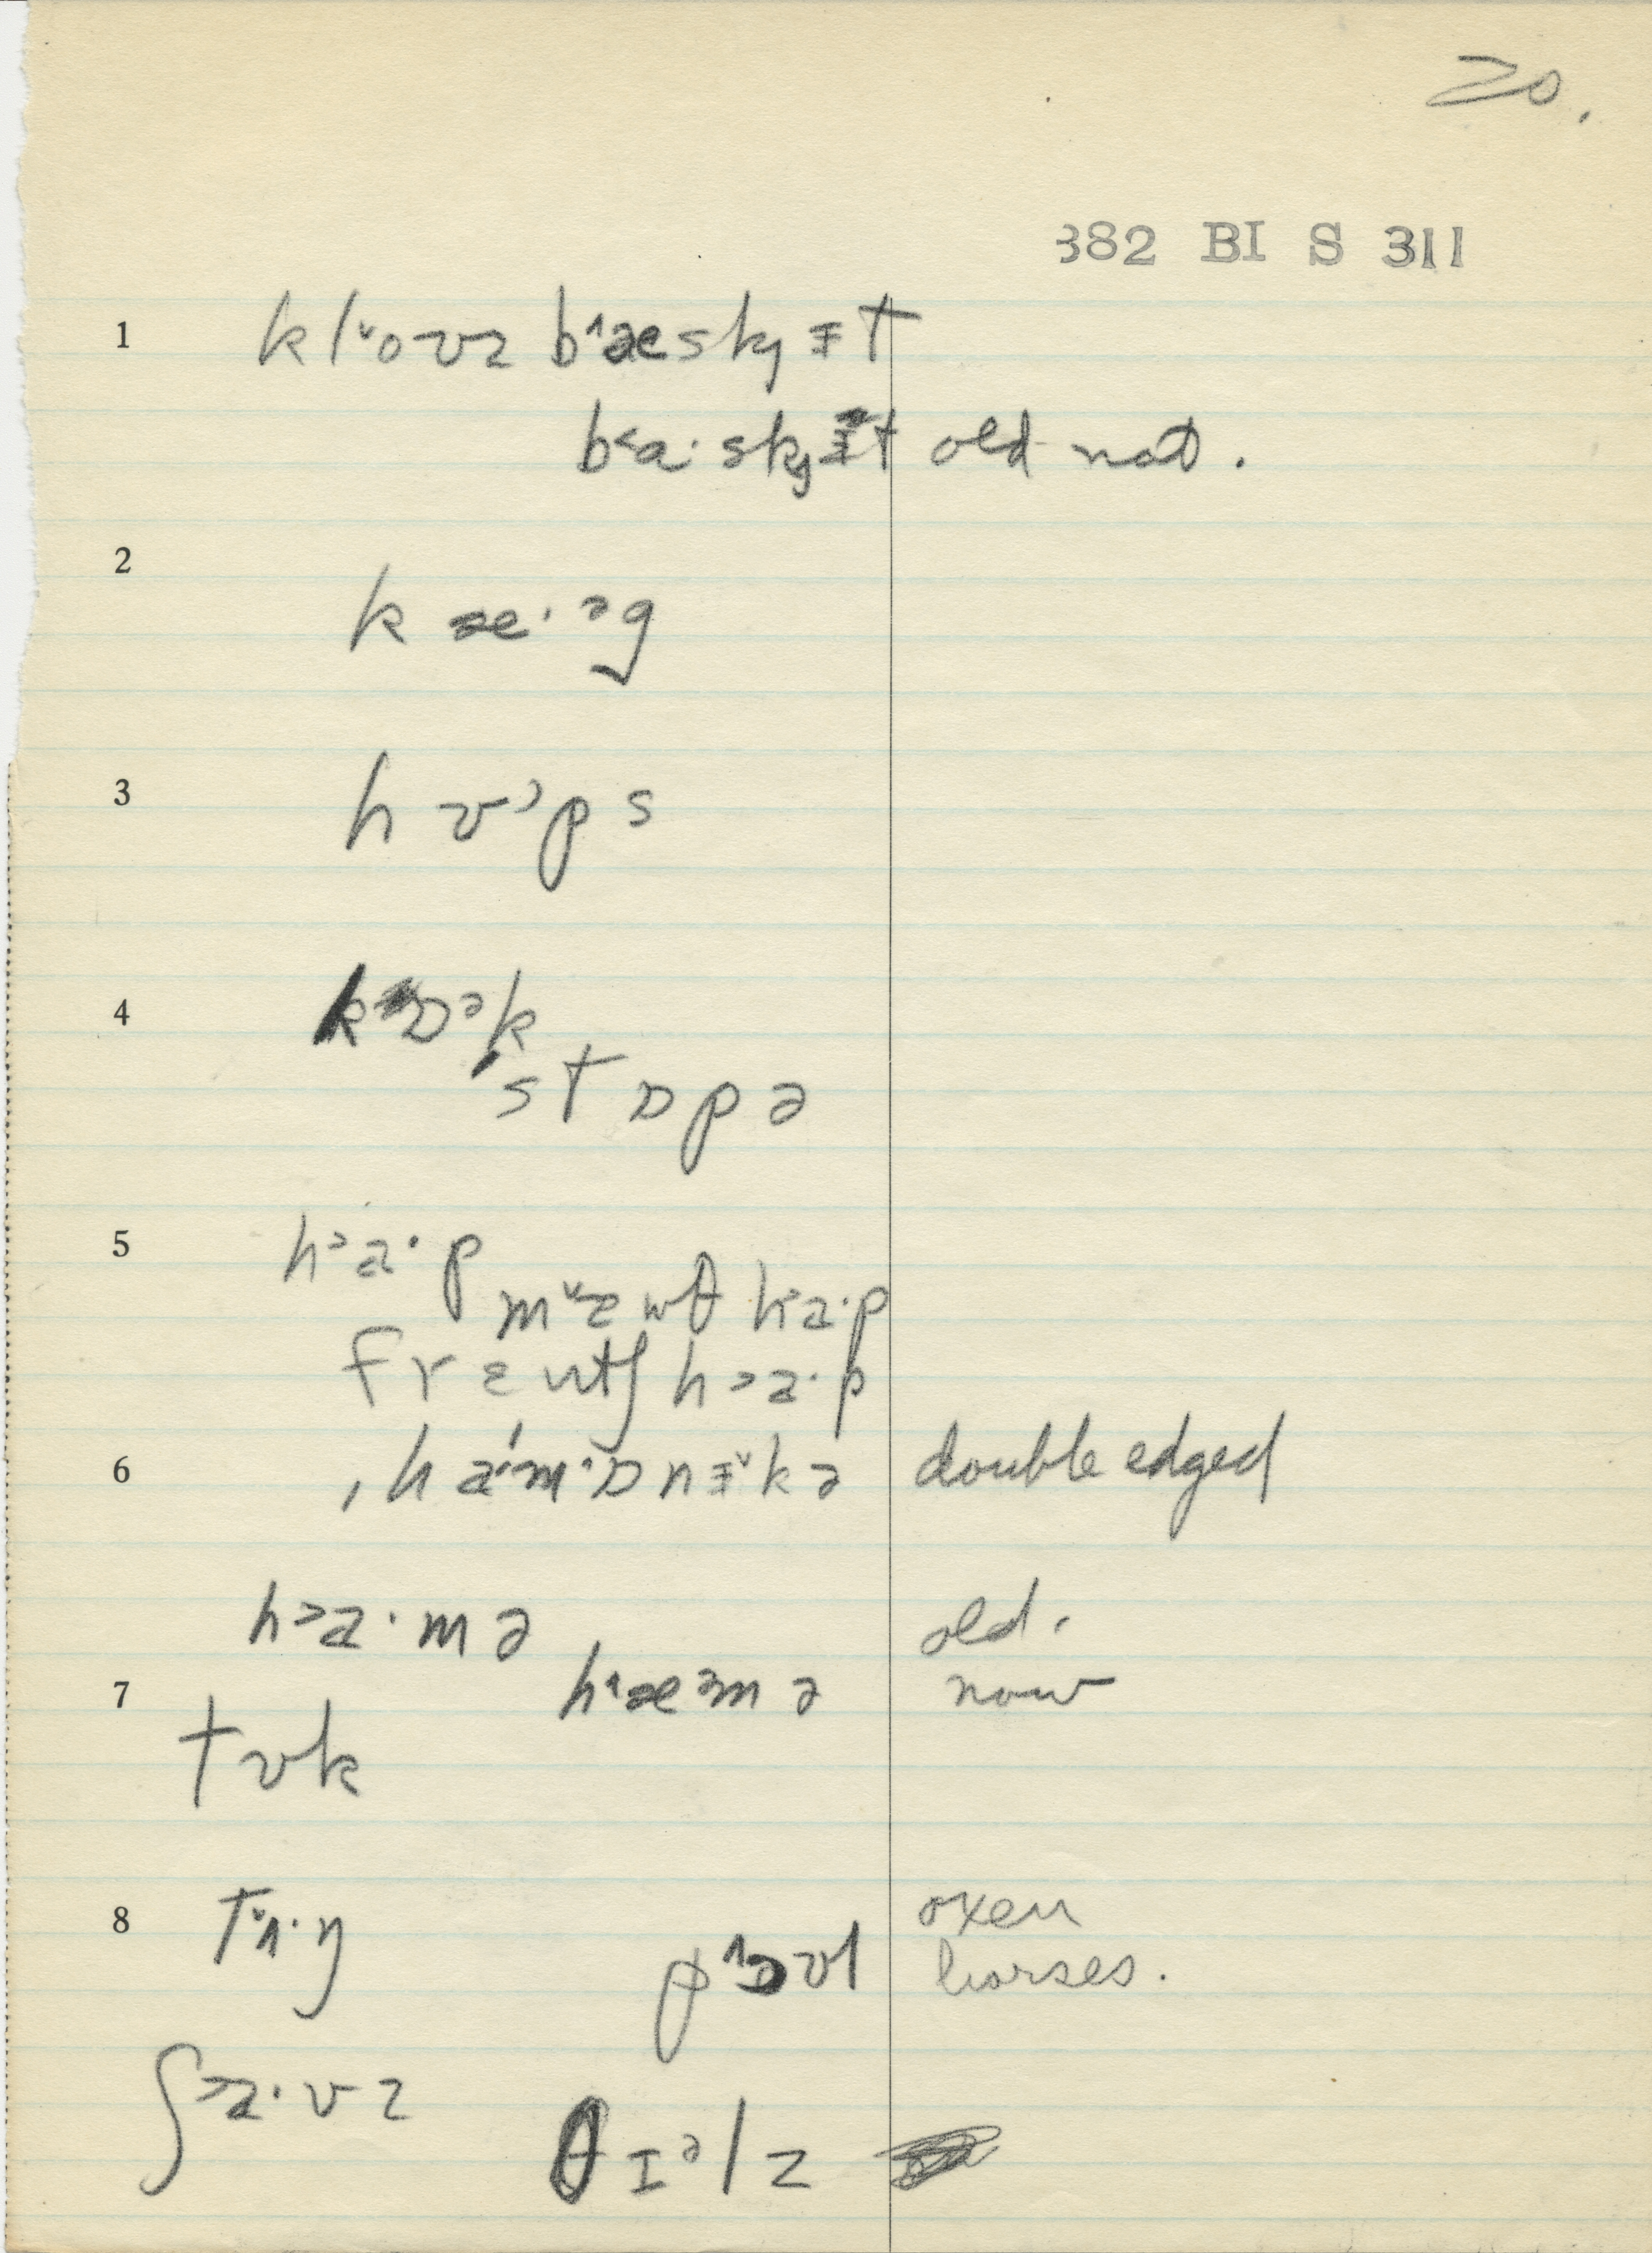 20.
382 BI S 311
1 klˇoʊz b^æskɟɨt
b˂a·skɟɨt old not.
2
kæ·ᵊg
3 hʊ˒ps
4 kɒᵊk
stɒpə
5 h˃a·p
mˇɛnθ h˃a·p
frɛntʃ h˃a·p
6 ˌha·ˈm·ɒnɨˇkə double edged
h˃a·mə old.
7 h^æᵊmə now
tʊk
8 tˇʌ·ŋ oxen
p^ɒʊl horses.
ʃ˃a·vz
θɪᵊlz